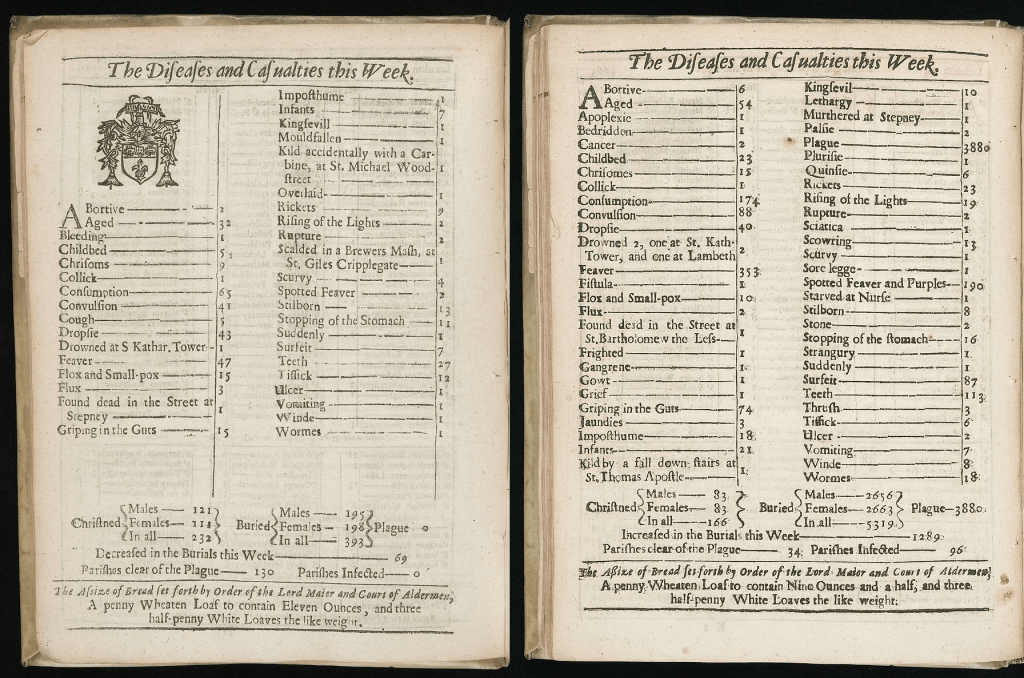 The Diſeaſes and Caſualties this Week.
ABortive 2
Aged 32
Bleeding 1
Childbed 5
Chriſoms 9
Collick 1
Conſumption 65
Convulſion 41
Cough 5
Dropſie 43
Drowned at S Kathar. Tower 1
Feaver 47
Flox and Small-pox 15
Flux 3
Found dead in the Street at
Stepney 1
Griping in the Guts 15
Impoſthume 1
Infants 7
Kingſevill 1
Mouldfallen 1
Kild accidentally with a Car-
bine, at St. Michael Wood-
ſtreet 1
Overlaid 1
Rickets 9
Riſing of the Lights 2
Rupture 2
Scalded in a Brewers Maſh, at
St. Giles Cripplegate 1
Scurvy 4
Spotted Feaver 2
Stilborn 13
Stopping of the Stomach 11
Suddenly 1
Surfeit 7
Teeth 27
Tiſſick 12
Ulcer 1
Vomiting 1
Winde 1
Wormes 1
Chriſtned Males 121 Females 111 In all 232 Buried Males 195 Females 198 In all 393 Plague 0
Decreaſed in the Burials this Week 69
Pariſhes clear of the Plague 130 Pariſhes Infected 0
The Aſſize of Bread ſet forth by Order of the Lord Maior and Court of Aldermen,
A penny Wheaten Loaf to contain Eleven Ounces, and three
half-penny White Loaves the like weight.
The Diſeaſes and Caſualties this Week.
ABortive 6
Aged 54
Apoplexie 1
Bedridden 1
Cancer 2
Childbed 23
Chriſomes 15
Collick 1
Conſumption 174
Convulſion 88
Dropſie 40
Drowned 2, one at St. Kath-
Tower, and one at Lambeth 2
Feaver 353
Fiſtula 1
Flox and Small-pox 10
Flux 2
Found dead in the Street at
St. Bartholomew the Leſs 1
Frighted 1
Gangrene 1
Gowt 1
Grief 1
Griping in the Guts 74
Jaundies 3
Impoſthume 18
Infants 21
Kild by a fall down ſtairs at
St. Thomas Apoſtle 1
Kingſevil 10
Lethargy 1
Murthered at Stepney 1
Palſie 2
Plague 3880
Pluriſie 1
Quinſie 6
Rickets 23
Riſing of the Lights 19
Rupture 2
Sciatica 1
Scowring 13
Scurvy 1
Sore legge 1
Spotted Feaver and Purples 190
Starved at Nurſe 1
Stilborn 8
Stone 2
Stopping of the ſtomach 16
Strangury 1
Suddenly 1
Surfeit 87
Teeth 113
Thruſh 3
Tiſſick 6
Ulcer 2
Vomiting 7
Winde 8
Wormes 18
Chriſtned Males 83 Females 83 In all 166 Buried Males 2656 Females 2663 In all 5319 Plague 3880
Increaſed in the Burials this Week 1289
Pariſhes clear of the Plague 34 Pariſhes Infected 96
The Aſſize of Bread ſet forth by Order of the Lord Maior and Court of Aldermen,
A penny Wheaten Loaf to contain Nine Ounces and a half, and three
half-penny White Loaves the like weight.